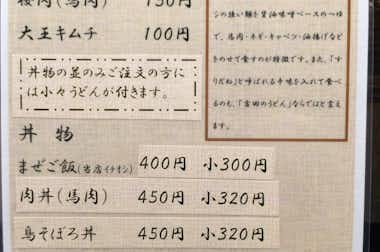 桜肉(馬肉) 150円
大王キムチ 100円
丼物の並のみご注文の方に
は小々うどんが付きます。
丼物
まぜご飯(当店イチオシ) 400円 小300円
肉丼(馬肉) 450円 小320円
鳥そぼろ丼 450円 小320円
シの強い麺を醤油味噌ベースのつゆ
で、馬肉・ネギ・キャベツ・油揚げなど
をのせて食すのが特徴です。また、「す
りだね」と呼ばれる辛味を入れて食べ
るのも、「吉田のうどん」ならではと言え
ます。